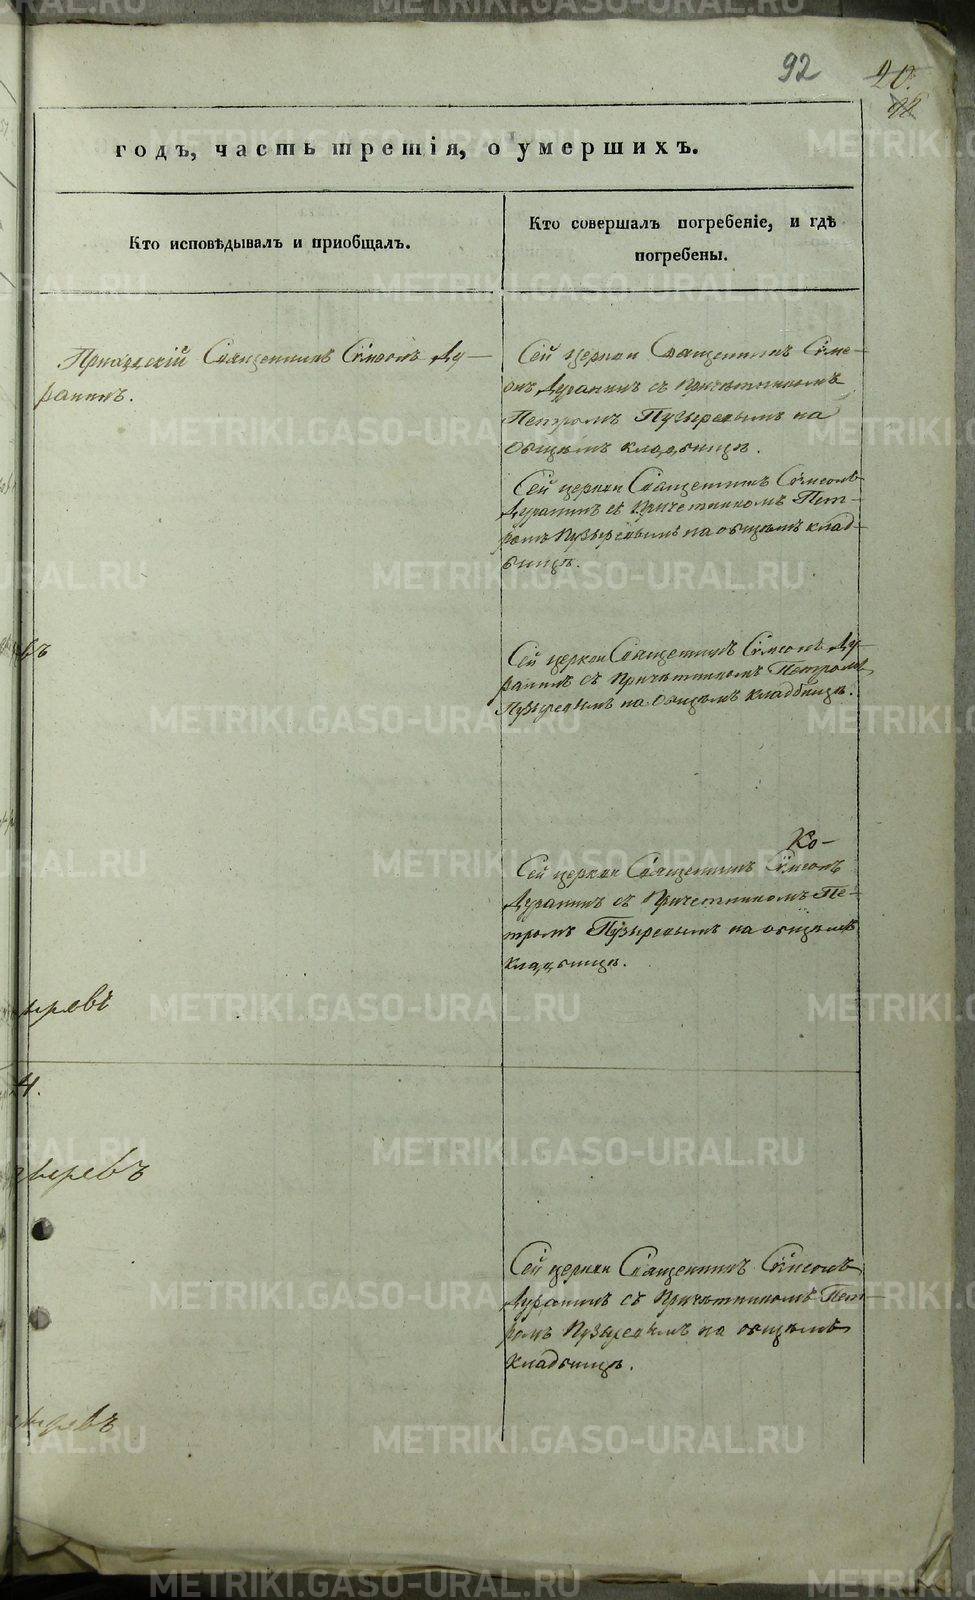 92
20.
годъ, часть третія, о умершихъ.
Кто исповѣдывалъ и пріобщалъ.
Кто совершалъ погребеніе, и гдѣ
погребены.
Священникъ Сѵмеонъ Ду-
ранинъ.
Сей церкви Священникъ Сѵме-
онъ Дуранинъ съ Причѣтникомъ
Петромъ Пузыревымъ на
общемъ кладбищѣ.
Сей церкви Священникъ Сѵмеонъ
Дуранинъ съ Причетникомъ Пет-
ромъ Пузыревымъ на общемъ клад-
бищѣ.
Сей церкви Священникъ Сѵмеонъ Ду-
ранинъ съ Причѣтникомъ Петромъ
Пузыревымъ на общемъ кладбищѣ.
Ко-
Сей церкви Священникъ Сѵмеонъ
Дуранинъ съ Причетникомъ Пе-
тромъ Пузыревымъ на общемъ
кладбищѣ.
ыревъ
4.
зыревъ
Сей церкви Священникъ Сѵмеонъ
Дуранинъ съ Причѣтникомъ Пет-
ромъ Пузыревымъ на общемъ
кладбищѣ.
ыревъ
METRIKI.GASO-URAL.RU